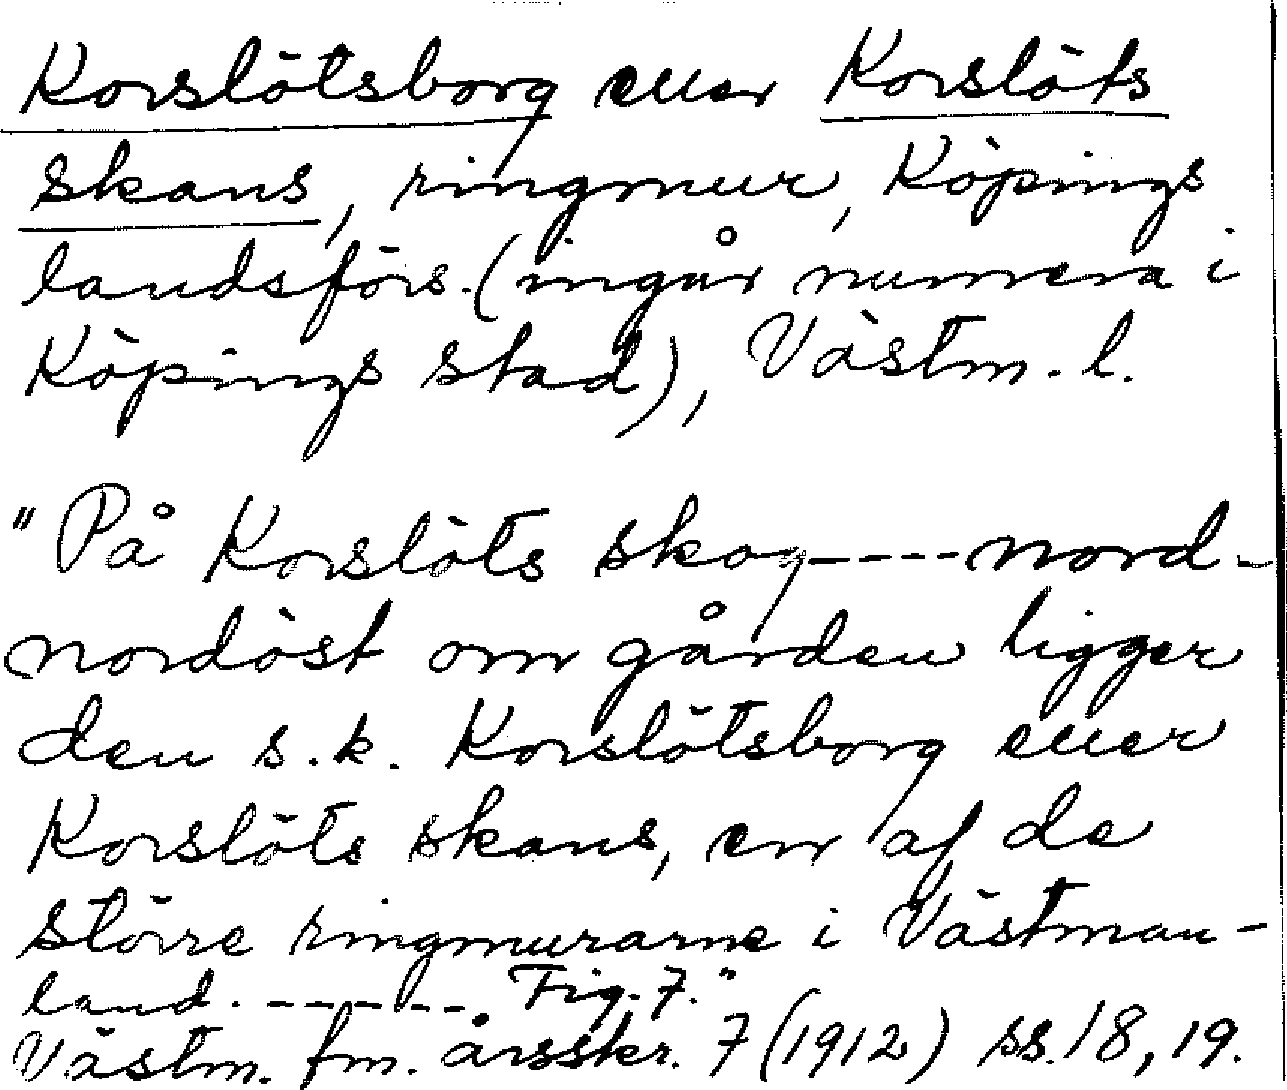 Korslötsborg eller Korslöts
skans, ringmur, Köpings
landsförs. (ingår numera i
Köpings stad), Västm. l.
"På Korslöts skog ---- nord-
nordöst om gården ligger
den s.k. Korslötsborg eller
Korslöts skans, en af de
större ringmurarne i Västman-
land. ------ Fig. 7."
Västm. fm. årsskr. 7 (1912) ss. 18, 19.